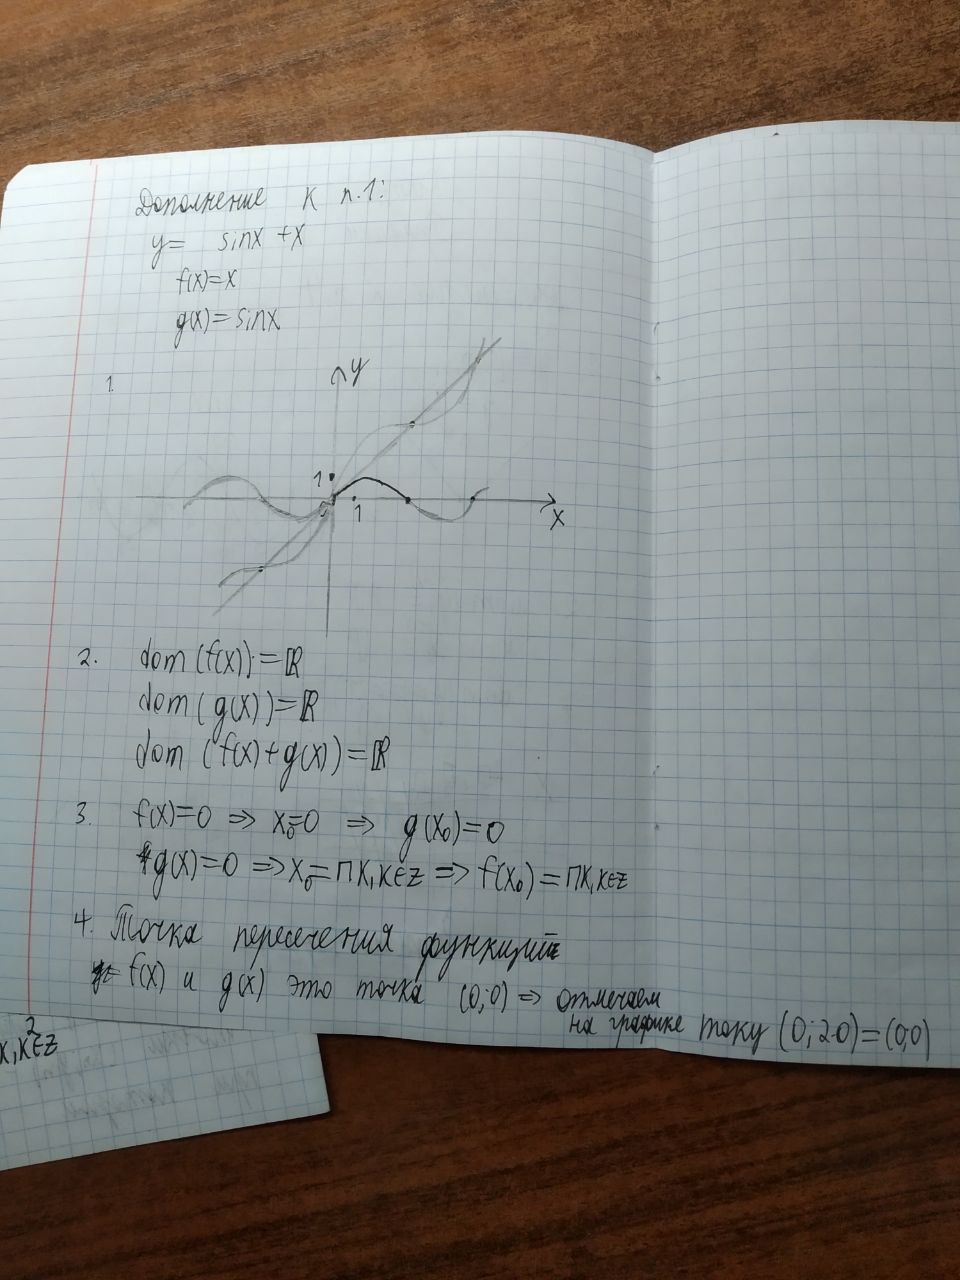 Дополнение к п.1:
y= sinx +x
f(x)=x
g(x)=sinx
1.
y
1
1
x
2. dom (f(x)) = ℝ
dom (g(x)) = ℝ
dom (f(x)+g(x)) = ℝ
3. f(x)=0 ⇒ x₀=0 ⇒ g(x₀)=0
g(x)=0 ⇒ x₀=πk, k∈z ⇒ f(x₀) = πk, k∈z
4. Точка пересечения функций
f(x) и g(x) это точка (0;0) ⇒ отмечаем
на графике точку (0; 2·0)=(0;0)
2
k, k∈z